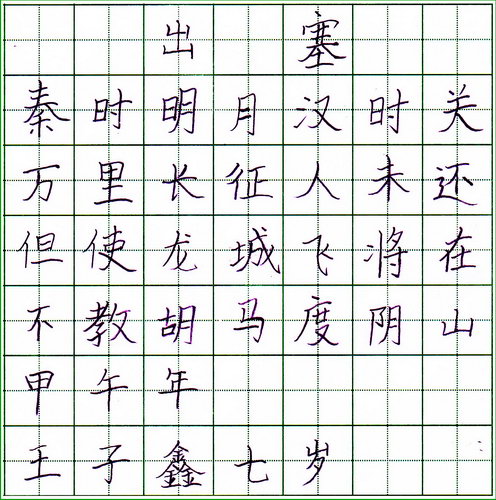 出塞
秦时明月汉时关
万里长征人未还
但使龙城飞将在
不教胡马度阴山
甲午年
王子鑫七岁